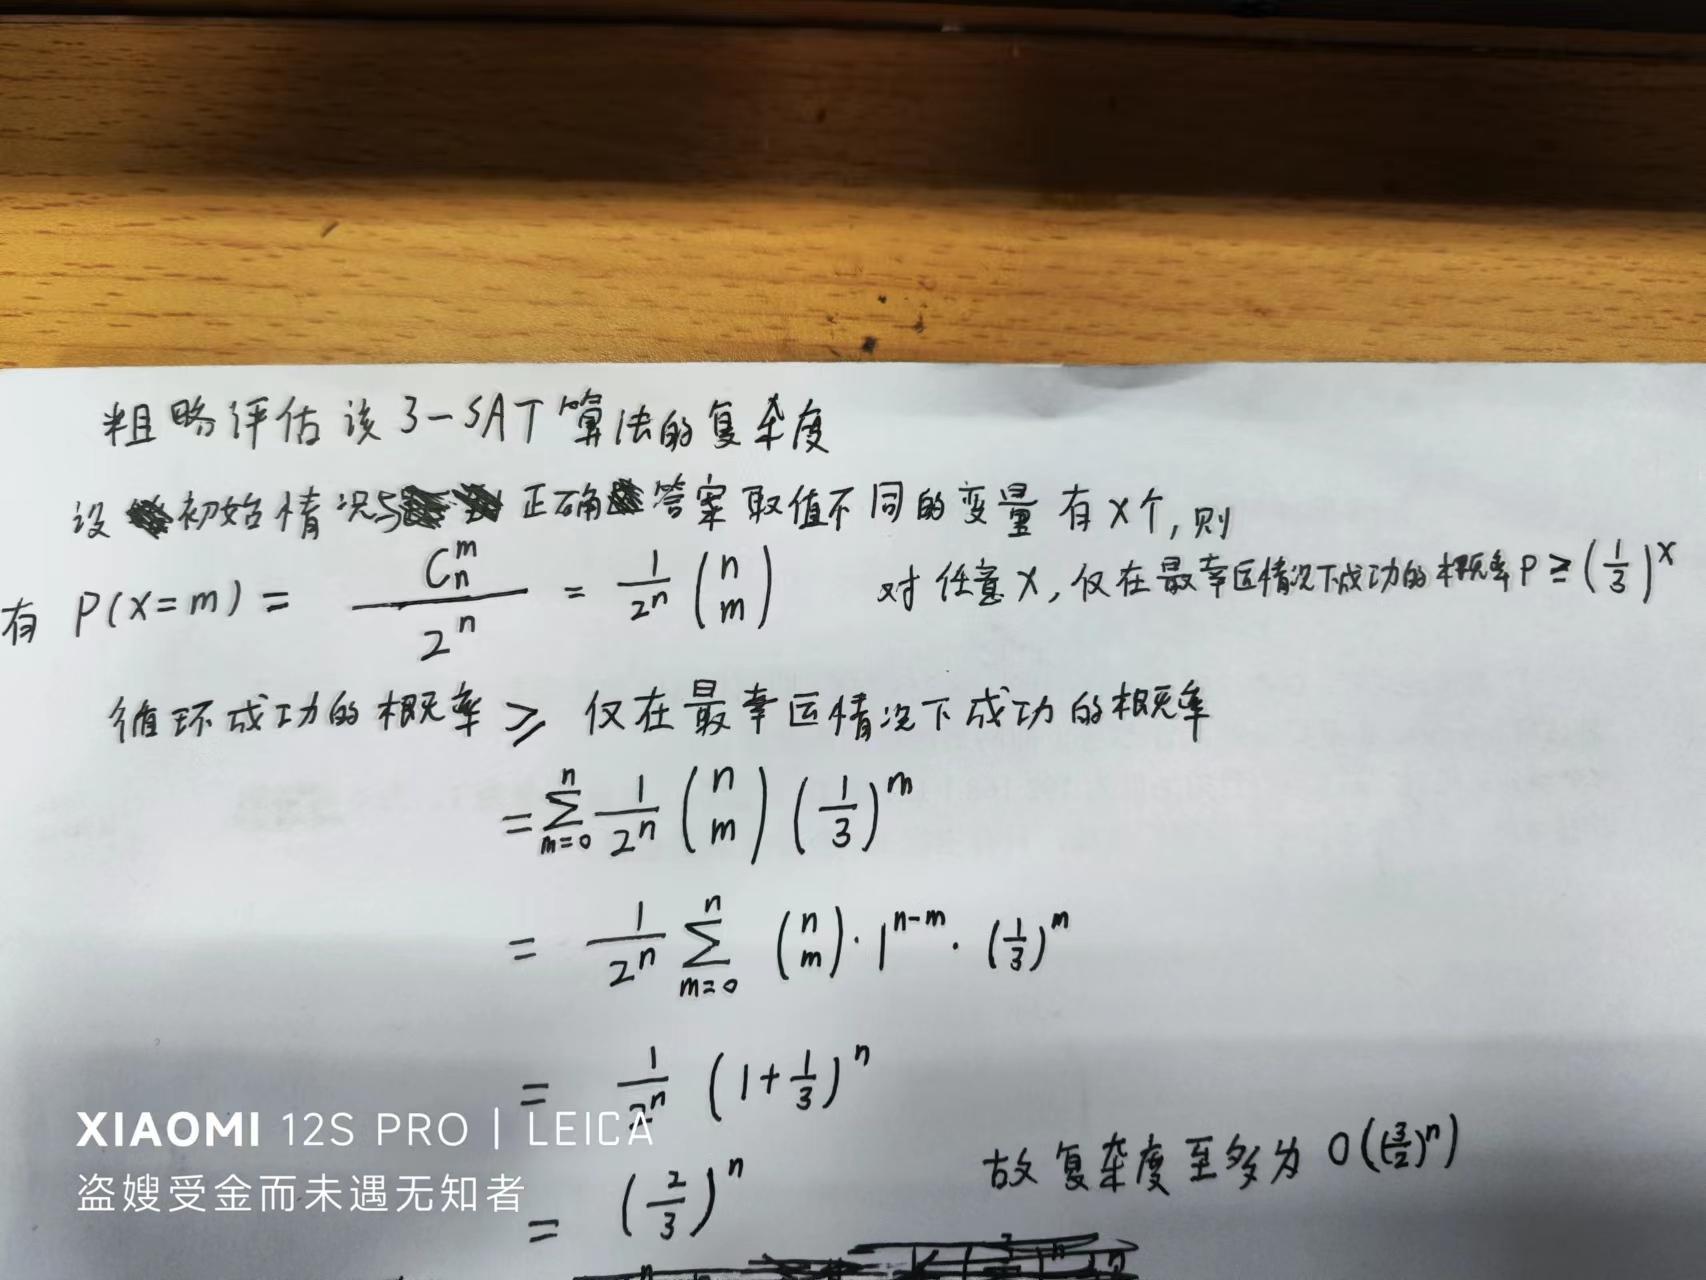 粗略评估该3-SAT算法的复杂度
设初始情况与正确答案取值不同的变量有X个,则
有 P(X=m) = C_n^m / 2^n = 1/2^n (n m) 对任意X,仅在最幸运情况下成功的概率P≥(1/3)^X
循环成功的概率 ≥ 仅在最幸运情况下成功的概率
= ∑_{m=0}^{n} 1/2^n (n m) (1/3)^m
= 1/2^n ∑_{m=0}^{n} (n m)·1^{n-m}·(1/3)^m
= 1/2^n (1+1/3)^n
= (2/3)^n 故复杂度至多为 O((3/2)^n)
XIAOMI 12S PRO | LEICA
盗嫂受金而未遇无知者